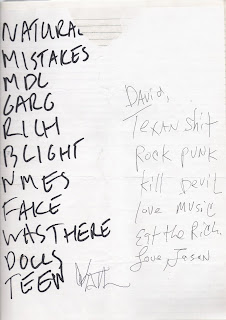 NATURAL
MISTAKES
MDC
GARG
RICH
BLIGHT
NMES
FAKE
WASTHERE
DOCS
TEEN
David,
Texan shit
Rock punk
kill Devil
love music
Eat the Rich.
Love, Jason